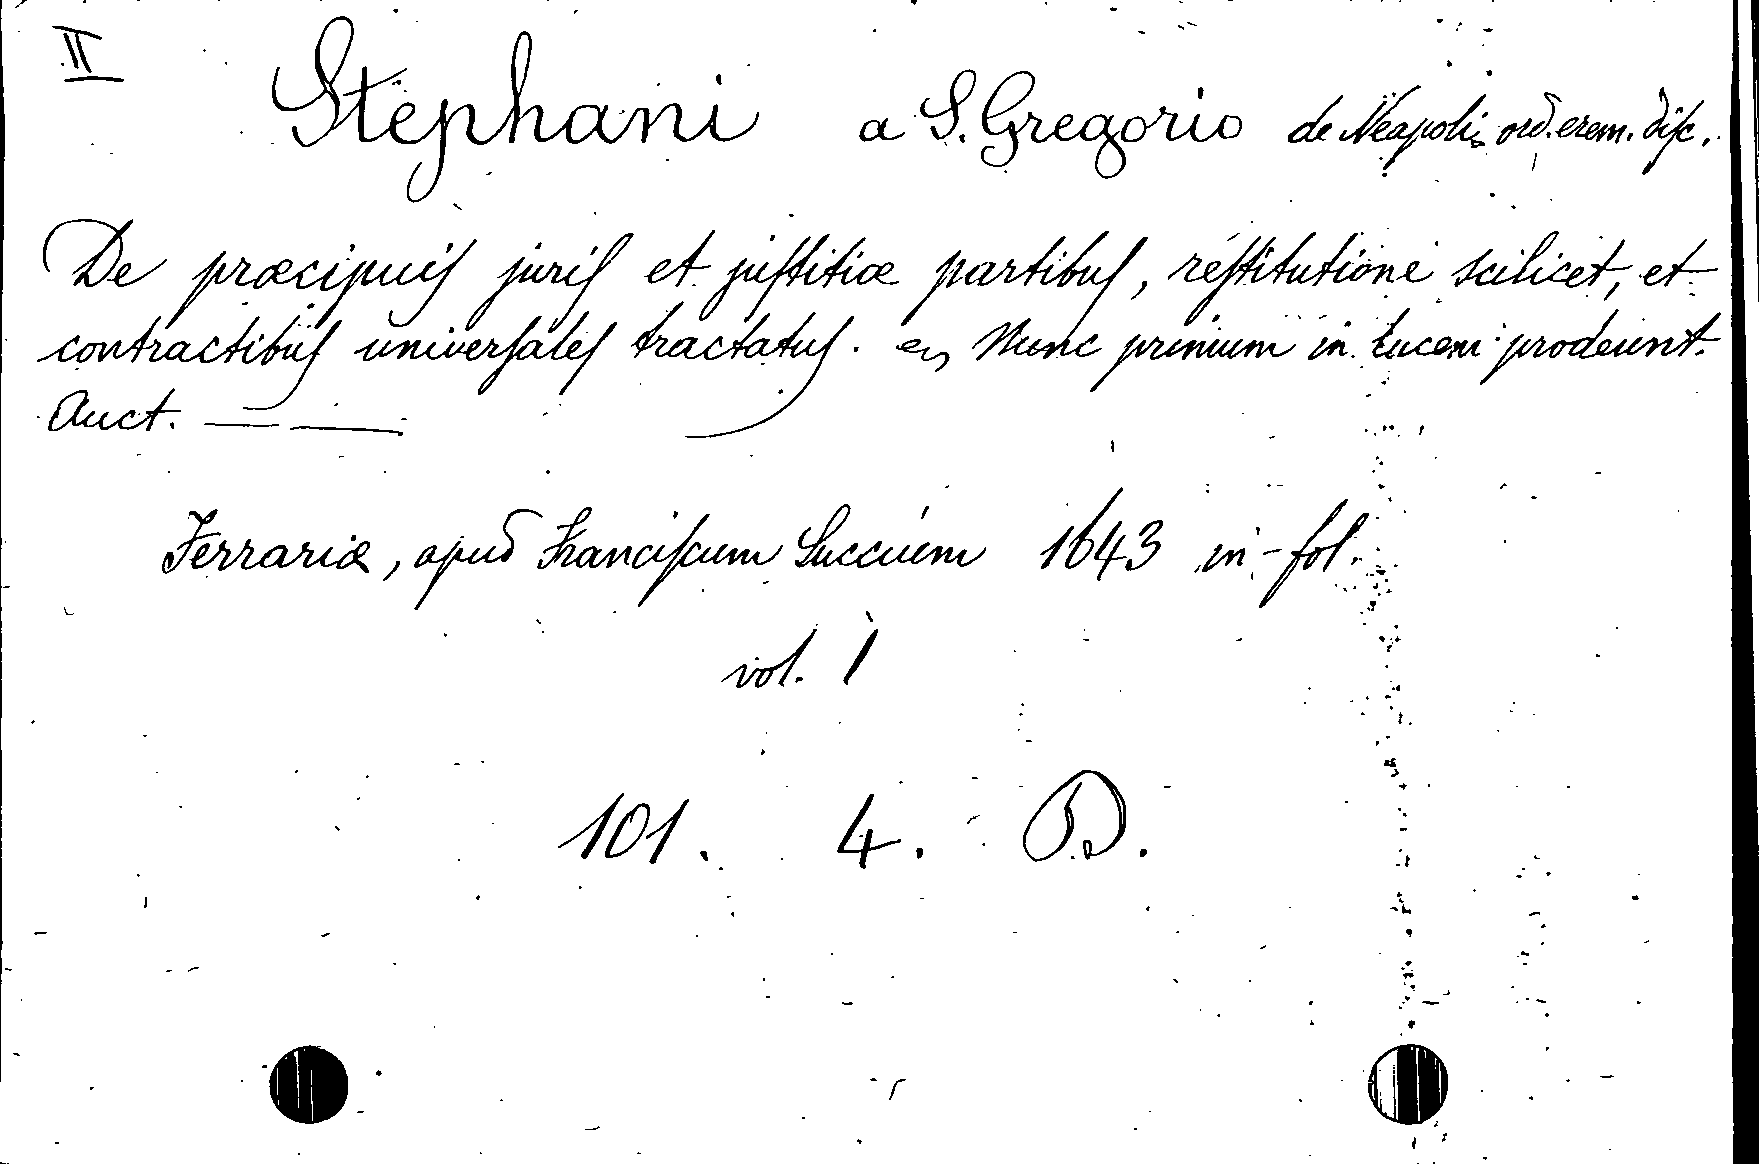 II
Stephani a S. Gregorio de Neapoli ord. erem. disc.
De præcipuis juris et justitiæ partibus, restitutione scilicet, et
contractibus universales tractatus. Nunc primum in lucem prodeunt.
Auct. — —
Ferrariæ, apud Franciscum Succium 1643 in-fol.
vol. 1
101. 4. D.